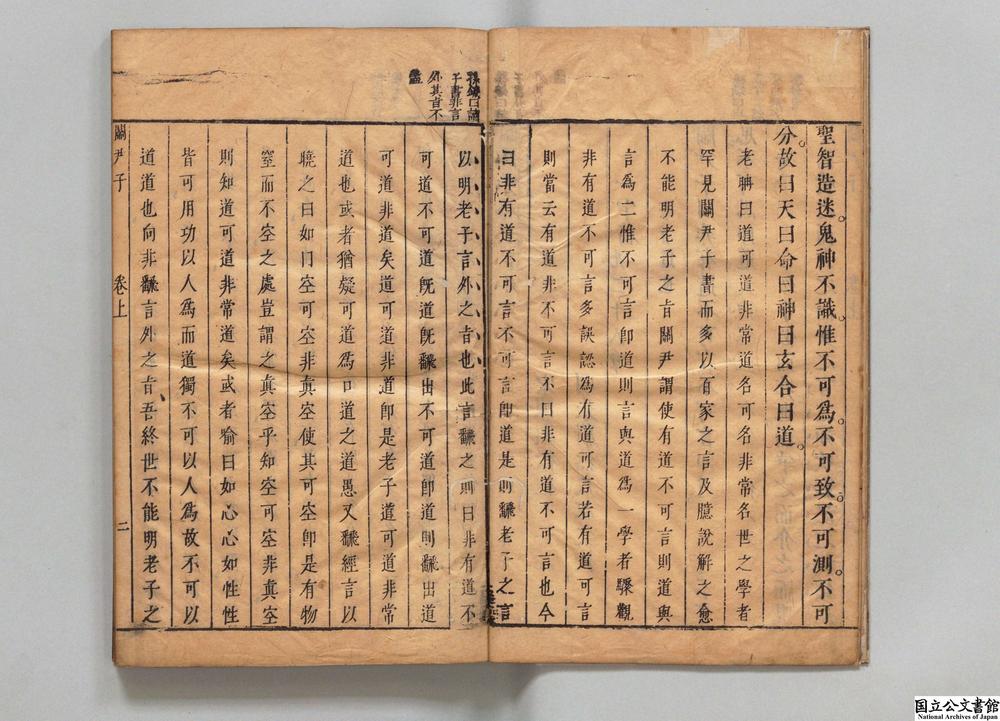 聖智造迷鬼神不識惟不可為不可致不可測不可
分故曰天曰命曰神曰玄合曰道
老聃曰道可道非常道名可名非常名世之學者
罕見關尹子書而多以百家之言及臆說解之愈
不能明老子之旨關尹謂使有道不可言則道與
言為二惟不可言即道則言與道為一學者驟觀
非有道不可言多誤認為有道可言若有道可言
則當云有道非不可言不曰非有道不可言也今
曰非有道不可言不可言即道是則翻老子之言
孫鑛曰讀
子書非言
外其旨不
盡
以明老子言外之旨也此言翻之則曰非有道不
可道不可道既道既翻出不可道即道則翻出道
可道非道矣道可道非道即是老子道可道非常
道也或者猶疑可道為口道之道愚又翻經言以
曉之曰如曰空可空非真空使其可空即是有物
窒而不空之處豈謂之真空乎知空可空非真空
則知道可道非常道矣或者喻曰如心心如性性
皆可用功以人為而道獨不可以人為故不可以
道道也向非翻言外之旨吾終世不能明老子之
關尹子
卷上
二
国立公文書館
National Archives of Japan